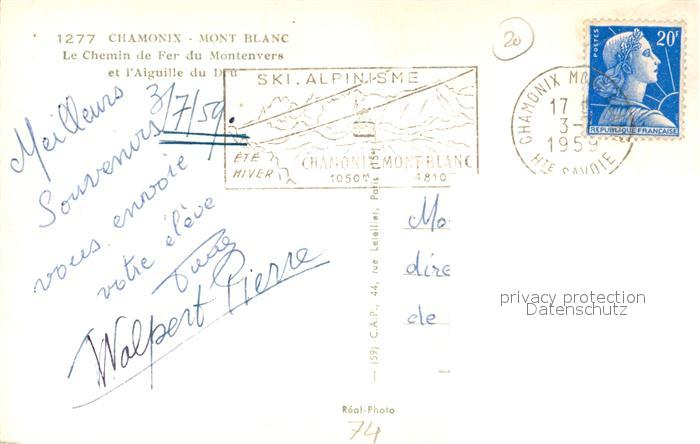 1277 CHAMONIX - MONT BLANC
Le Chemin de Fer du Montenvers
et l'Aiguille du Dru
20
POSTES
20F
REPUBLIQUE FRANÇAISE
CHAMONIX MO
17
3-
1959
HTE SAVOIE
SKI. ALPINISME
ÉTÉ
HIVER
CHAMONIX MONT-BLANC
1050M 4810
3/7/59.
Meilleurs
Souvenirs
vous envoie
votre élève
Wolpert Pierre
(59) C.A.P., 44, rue Letellier, Paris (15e)
Mo
dire
de
privacy protection
Datenschutz
Réal-Photo
74